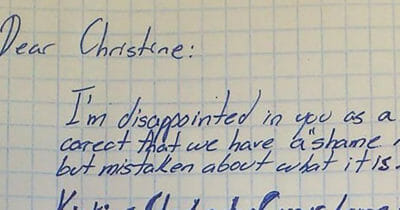 Dear Christine:
I'm disappointed in you as a
correct that we have a "shame
but mistaken about what it is.